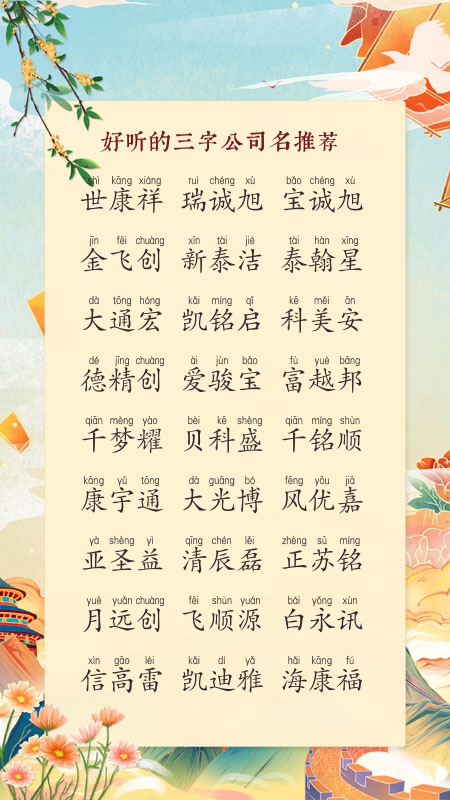 好听的三字公司名推荐
shì kāng xiáng ruì chéng xù bǎo chéng xù
世康祥 瑞诚旭 宝诚旭
jīn fēi chuàng xīn tài jié tài hàn xīng
金飞创 新泰洁 泰翰星
dà tōng hóng kǎi míng qǐ kē měi ān
大通宏 凯铭启 科美安
dé jīng chuàng ài jùn bǎo fù yuè bāng
德精创 爱骏宝 富越邦
qiān mèng yào bèi kē shèng qiān míng shùn
千梦耀 贝科盛 千铭顺
kāng yǔ tōng dà guāng bó fēng yōu jiā
康宇通 大光博 风优嘉
yà shèng yì qīng chén lěi zhèng sū míng
亚圣益 清辰磊 正苏铭
yuè yuǎn chuàng fēi shùn yuán bái yǒng xùn
月远创 飞顺源 白永讯
xìn gāo léi kǎi dí yǎ hǎi kāng fú
信高雷 凯迪雅 海康福